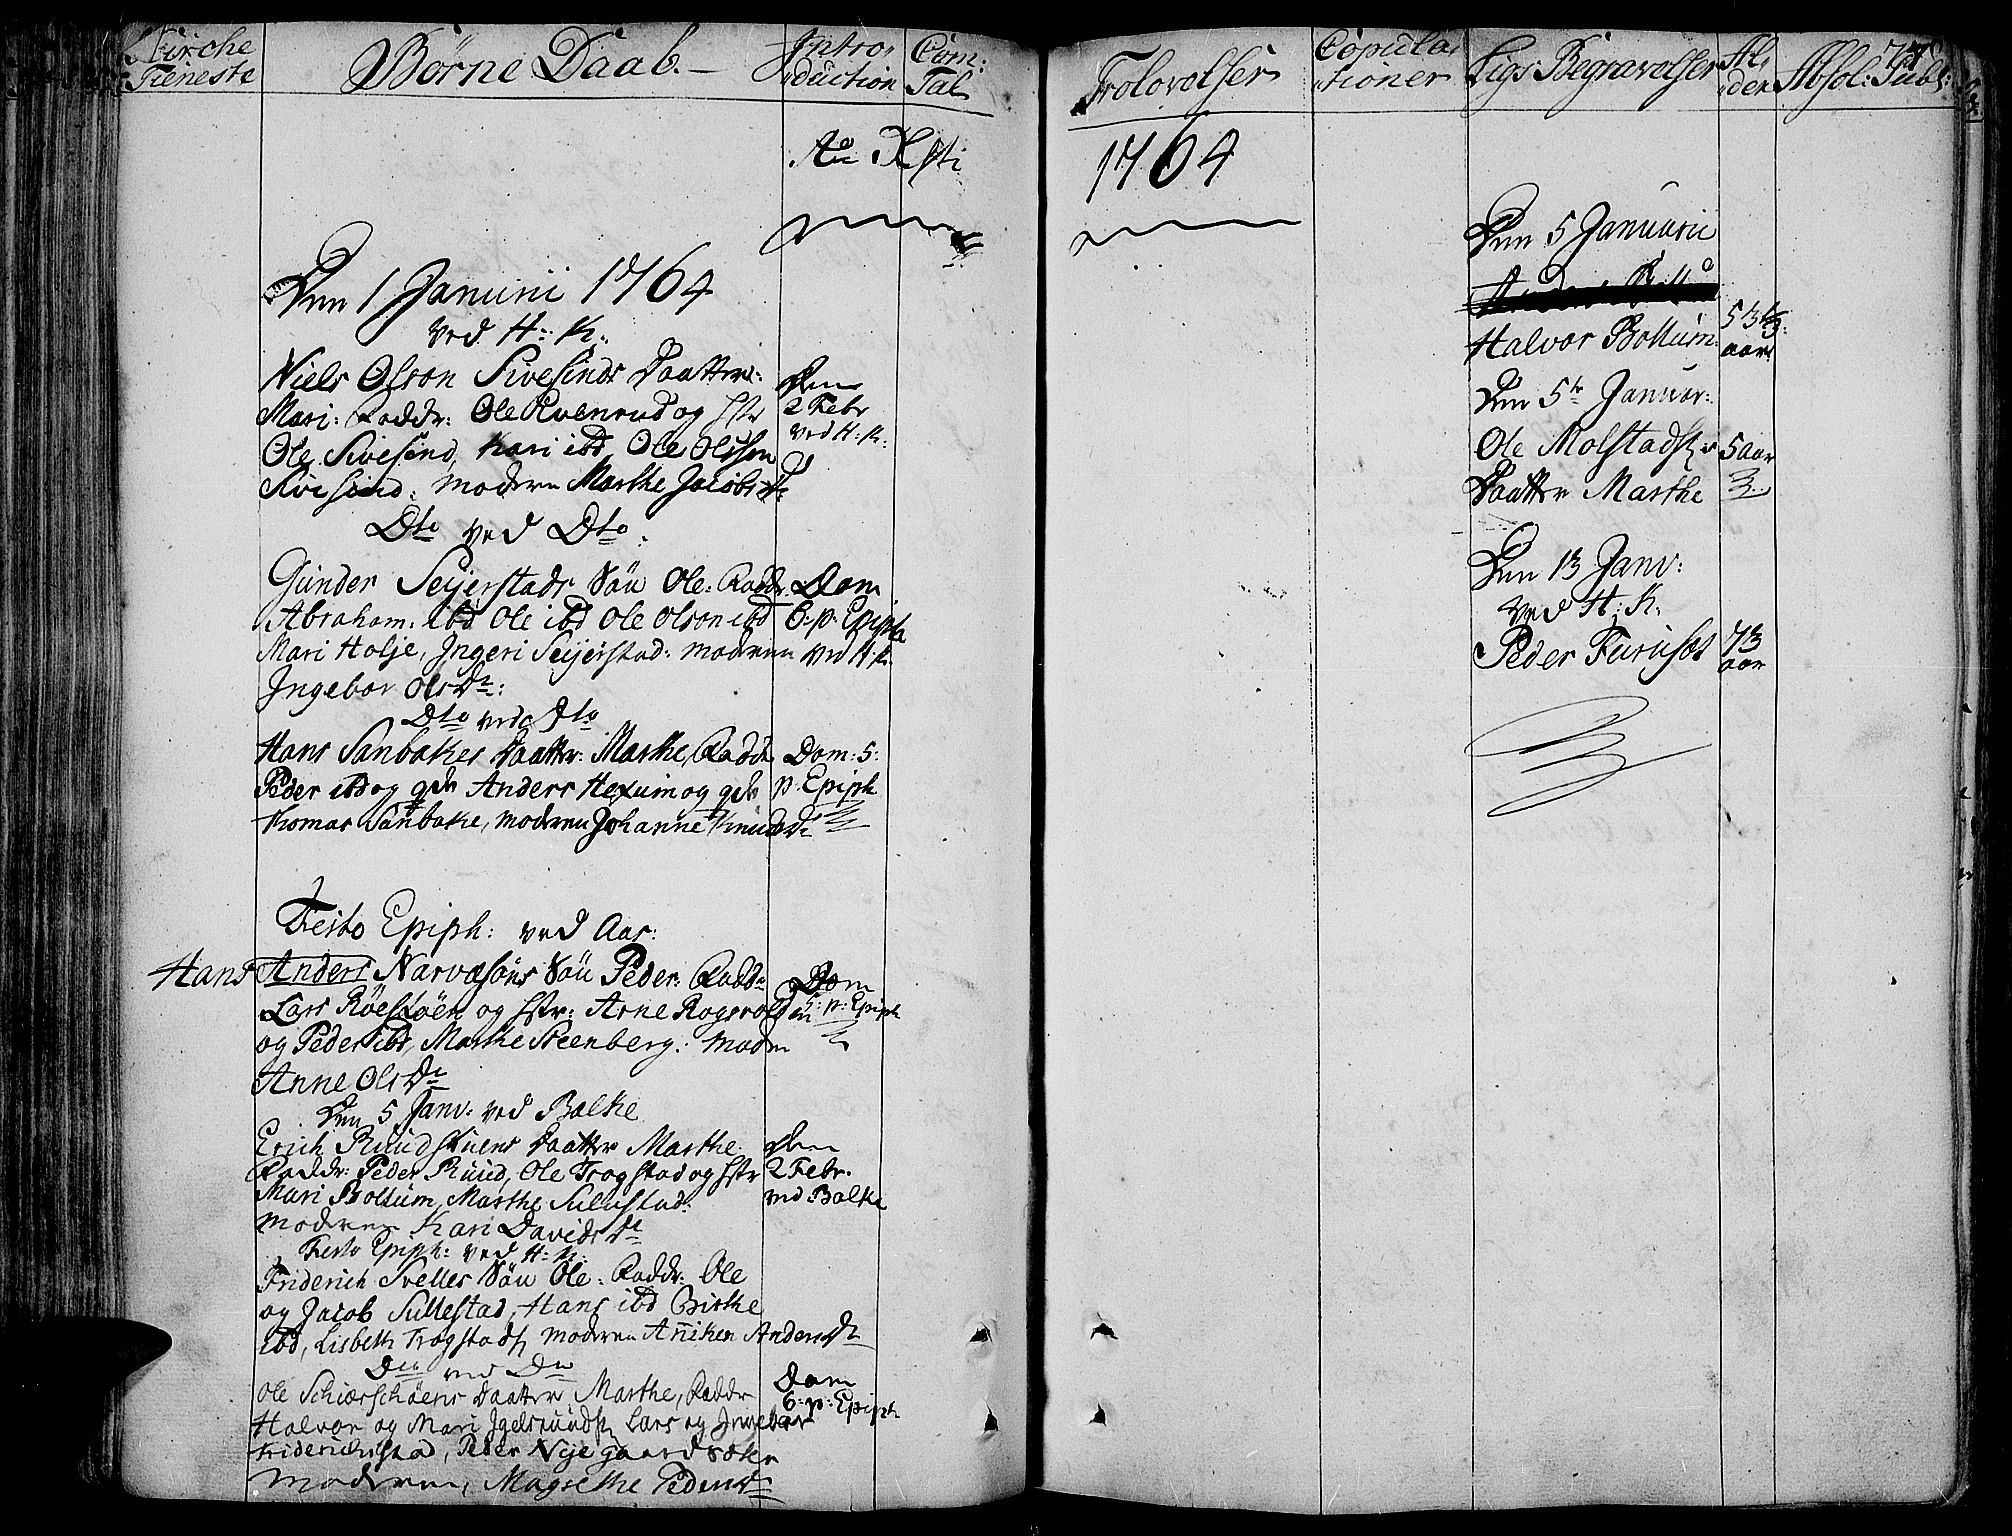 Kirche
Tieneste
Børne Daab. —
Intro,
duction
Com:
Tal
Ao Xsti
Den 1 Januarii 1764
ved H: K:
Niels Olson Sivesinds Daatter:
Mari: Faddr: Ole Ruenrud og Hstr
Ole Sivesind, Kari ibd Ole Olsson
Sivesind: moderen Marthe Jacobs Dr
Den
2 Febr
ved H: K:
Dto ved Dto:
Gunder Seijerstads Søn Ole: Faddr:
Abraham: ibd Ole ibd Ole Olson ibd
Mari Holje, Ingeri Seijerstad: modren
Ingebor Ols Dr:
Dom
6: p: Epiph
ved H: K:
Dto ved Dto
Hans Sanbakes Daatter: Marthe, Faddr
Peder ibd og Anders Hexum og
Thomas Sanbake, modren Johanne Knuds Dr
Dom: 5:
p. Epiph
Festo Epiph: ved Aas:
Hans Anders Narvesøns Søn Peder: Faddr
Lars Røestøen og Hstr: Arne Rognvold
og Peder ibd, Marthe Steenberg: modren
Anne Ols Dr
Dom
5: p: Epiph
Den 5 Janv: ved Balke
Erich Ruudstuens Daatter Marthe
Faddr: Peder Ruud, Ole Trogstad og Hstr
Mari Bollum, Marthe Sullestad:
modren Kari Davids Dr
Den
2 Febr.
ved Balke
Festo Epiph: ved H: K:
Friderich Svelles Søn Ole: Faddr: Ole
og Jacob Sullestad, Hans ibd Birthe
ibd, Lisbeth Trogstad, modren Anniken Anders Dr
Dto ved Dto
Ole Schiærschøens Daatter Marthe, Faddr
Halvor og Mari Lars og Ingebor
Friderichstad, Peder Nijegaard
modren, Magrethe Peders Dr
Dom
6: p: Epiph
Trolovelser
Copula,
tioner
Ligs: Begravelser
Al,
der
Absol: Publ:
1764
Den 5 Januarii
Halvor Bollum
53
aar
Den 5te Januar:
Ole Molstads
Daatter Marthe
5 aar
Den 13 Janv:
ved H: K:
Peder Furuset
73
aar